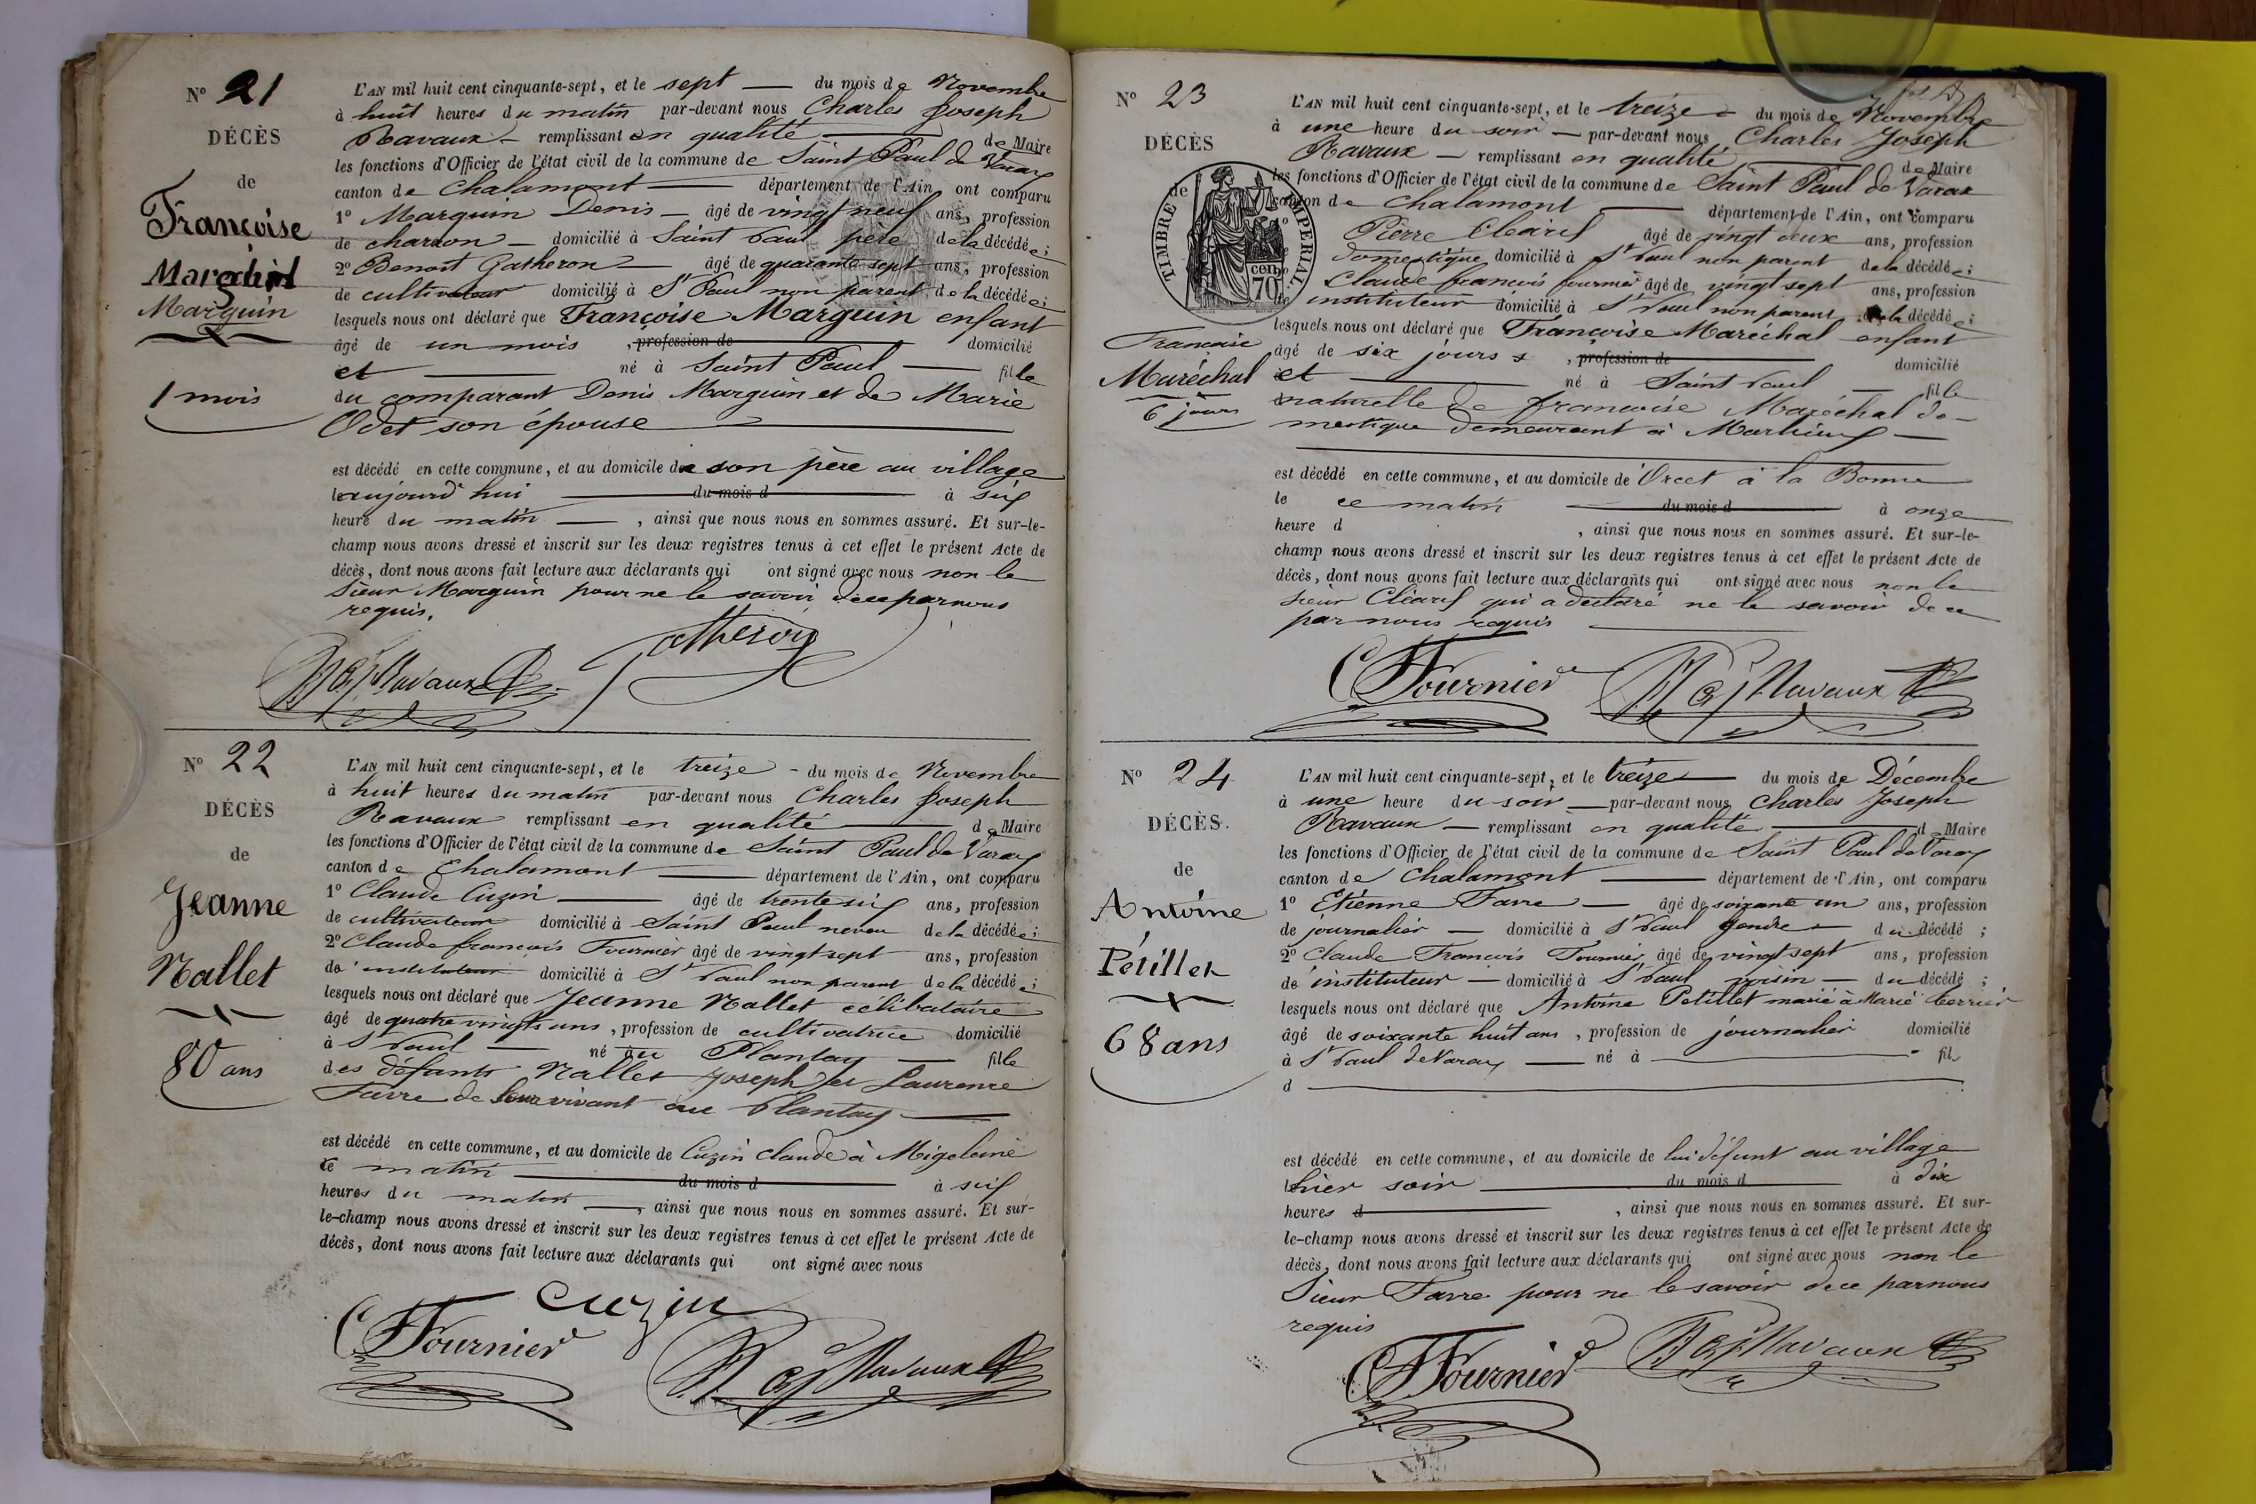 N° 21
DÉCÈS
de
Françoise
Marguin
1 mois
L'AN mil huit cent cinquante-sept, et le sept du mois de Novembre
à huit heures du matin par-devant nous Charles Joseph
Ravaux remplissant en qualité de Maire
les fonctions d'Officier de l'état civil de la commune de Saint Paul de Varax
canton de Chalamont département de l'Ain ont comparu
1° Marguin Denis âgé de vingt neuf ans, profession
de charron domicilié à Saint Paul père de la décédée;
2° Benoit Gatheron âgé de quarante sept ans, profession
de cultivateur domicilié à St Paul non parent de la décédée;
lesquels nous ont déclaré que Françoise Marguin enfant
âgé de un mois , profession de domicilié
et né à Saint Paul fille
du comparant Denis Marguin et de Marie
Odet son épouse
est décédé en cette commune, et au domicile de son père au village
le aujourd'hui du mois d à six
heure du matin , ainsi que nous nous en sommes assuré. Et sur-le-
champ nous avons dressé et inscrit sur les deux registres tenus à cet effet le présent Acte de
décès, dont nous avons fait lecture aux déclarants qui ont signé avec nous non le
sieur Marguin pour ne le savoir de ce par nous
requis.
Gatheron
Ravaux
N° 22
DÉCÈS
de
Jeanne
Nallet
80 ans
L'AN mil huit cent cinquante-sept, et le treize du mois de Novembre
à huit heures du matin par-devant nous Charles Joseph
Ravaux remplissant en qualité de Maire
les fonctions d'Officier de l'état civil de la commune de Saint Paul de Varax
canton de Chalamont département de l'Ain, ont comparu
1° Claude Cuzin âgé de trente six ans, profession
de cultivateur domicilié à Saint Paul neveu de la décédée;
2° Claude françois Fournier âgé de vingt sept ans, profession
de instituteur domicilié à St Paul non parent de la décédée;
lesquels nous ont déclaré que Jeanne Nallet célibataire
âgé de quatre vingts ans, profession de cultivatrice domicilié
à St Paul né au Plantay fille
des défants Nallet Joseph et Laurence
Favre de leur vivant au Plantay
est décédé en cette commune, et au domicile de Cuzin Claude à Migeleine
ce matin du mois d à six
heures du matin , ainsi que nous nous en sommes assuré. Et sur-
le-champ nous avons dressé et inscrit sur les deux registres tenus à cet effet le présent Acte de
décès, dont nous avons fait lecture aux déclarants qui ont signé avec nous
Cuzin
Fournier
Ravaux
N° 23
DÉCÈS
de
TIMBRE IMPERIAL
70 cen
Françoise
Maréchal
6 jours
L'AN mil huit cent cinquante-sept, et le treize du mois de Novembre
à une heure du soir par-devant nous Charles Joseph
Ravaux remplissant en qualité de Maire
les fonctions d'Officier de l'état civil de la commune de Saint Paul de Varax
canton de Chalamont département de l'Ain, ont comparu
Pierre âgé de vingt deux ans, profession
domestique domicilié à St Paul non parent de la décédée;
Claude françois fournier âgé de vingt sept ans, profession
de instituteur domicilié à St Paul non parent de la décédée;
lesquels nous ont déclaré que Françoise Maréchal enfant
âgé de six jours , profession de domicilié
et né à Saint Paul fille
naturelle de françoise Maréchal do-
mestique demeurant à Marlieux
est décédé en cette commune, et au domicile de Orcet à la Bonne
le ce matin du mois d à onze
heure d , ainsi que nous nous en sommes assuré. Et sur-le-
champ nous avons dressé et inscrit sur les deux registres tenus à cet effet le présent Acte de
décès, dont nous avons fait lecture aux déclarants qui ont signé avec nous non le
sieur qui a déclaré ne le savoir de ce
par nous requis
Fournier
Ravaux
N° 24
DÉCÈS.
de
Antoine
Pétillet
68 ans
L'AN mil huit cent cinquante-sept, et le treize du mois de Décembre
à une heure du soir par-devant nous Charles Joseph
Ravaux remplissant en qualité de Maire
les fonctions d'Officier de l'état civil de la commune de Saint Paul de Varax
canton de Chalamont département de l'Ain, ont comparu
1° Etienne Favre âgé de soixante un ans, profession
de journalier domicilié à St Paul gendre du décédé;
2° Claude François Fournier âgé de vingt sept ans, profession
de instituteur domicilié à St Paul voisin du décédé;
lesquels nous ont déclaré que Antoine Petillet marié à Marie Cerrier
âgé de soixante huit ans, profession de journalier domicilié
à St Paul de Varax né à fil
d
est décédé en cette commune, et au domicile de lui défunt au village
hier soir du mois d à dix
heures d , ainsi que nous nous en sommes assuré. Et sur-
le-champ nous avons dressé et inscrit sur les deux registres tenus à cet effet le présent Acte de
décès, dont nous avons fait lecture aux déclarants qui ont signé avec nous non le
Sieur Favre pour ne le savoir de ce par nous
requis
Fournier
Ravaux